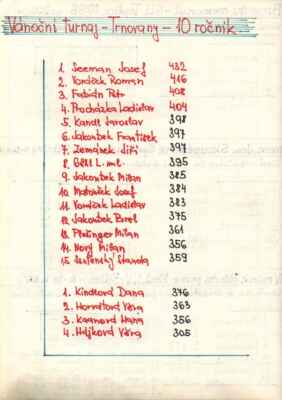 Vánoční turnaj - Trnovany - 10 ročník
1. Seeman Josef 432
2. Vondrášek Roman 416
3. Fabián Petr 408
4. Procházka Ladislav 404
5. Kandl Jaroslav 398
6. Jakoubek František 397
7. Zemánek Jiří 397
8. L. ml. 395
9. Jakoubek Milan 385
10 Josef 384
11 Ladislav 383
12 Jakoubek Pavel 375
13 Milan 361
14 Nový Milan 356
15 Standa 359
1. Dana 376
2. Věra 363
3. Hana 356
4. Hájková Věra 305